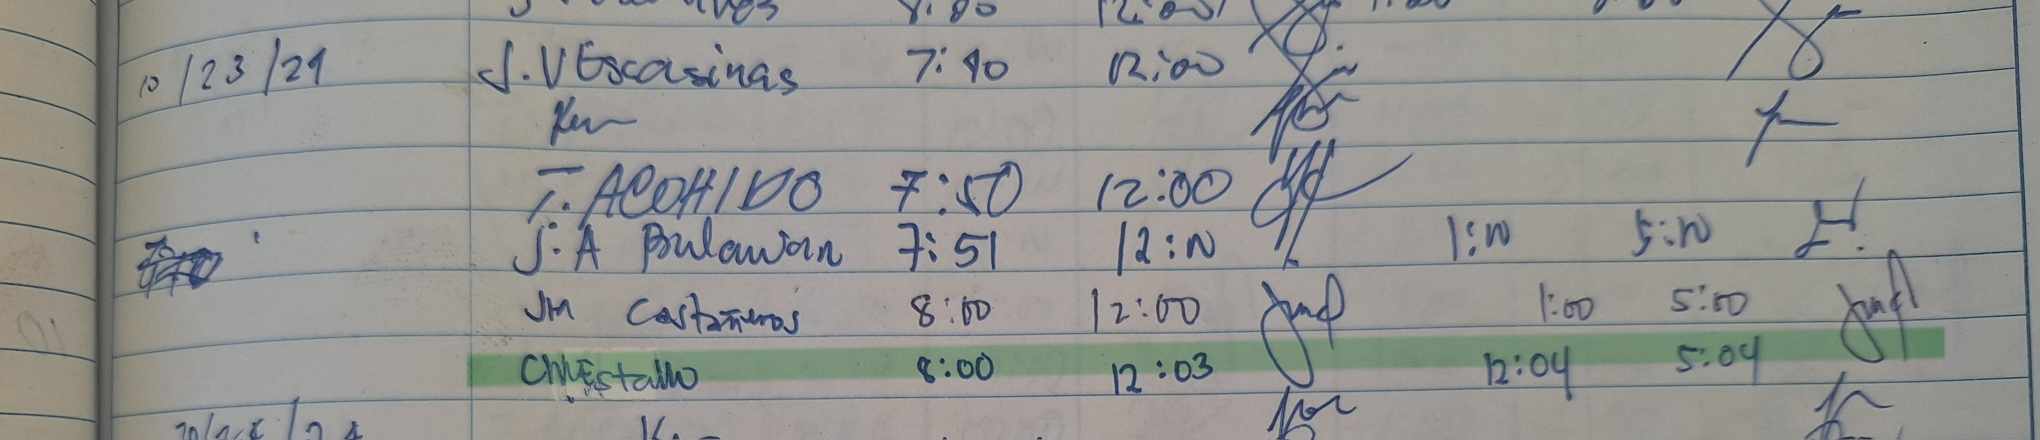 8:00 12:00
10/23/24 J.V Escasinas 7:40 12:00
Ken
T. ACOHIDO 7:50 12:00
J.A Bulawan 7:51 12:N 1:N 5:N
JM Castañeros 8:00 12:00 1:00 5:00
8:00 12:03 12:04 5:04